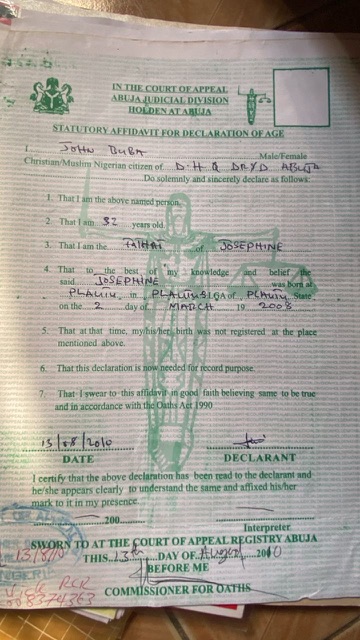 IN THE COURT OF APPEAL
ABUJA JUDICIAL DIVISION
HOLDEN AT ABUJA
STATUTORY AFFIDAVIT FOR DECLARATION OF AGE
I JOHN BUBA Male/Female
Christian/Muslim Nigerian citizen of D.H.Q ABUJA
Do solemnly and sincerely declare as follows:
1. That I am the above named person.
2. That I am 32 years old.
3. That I am the of JOSEPHINE
4. That to the best of my knowledge and belief the
said JOSEPHINE was born at
in LGA of State
on the 2 day of MARCH 19 2008
5. That at that time, my/his/her birth was not registered at the place
mentioned above.
6. That this declaration is now needed for record purpose.
7. That I swear to this affidavit in good faith believing same to be true
and in accordance with the Oaths Act 1990
13/08/2010
DATE DECLARANT
I certify that the above declaration has been read to the declarant and
he/she appears clearly to understand the same and affixed his/her
mark to it in my presence.
200
Interpreter.
SWORN TO AT THE COURT OF APPEAL REGISTRY ABUJA
THIS 13th DAY OF August 2010
BEFORE ME
COMMISSIONER FOR OATHS
RCR